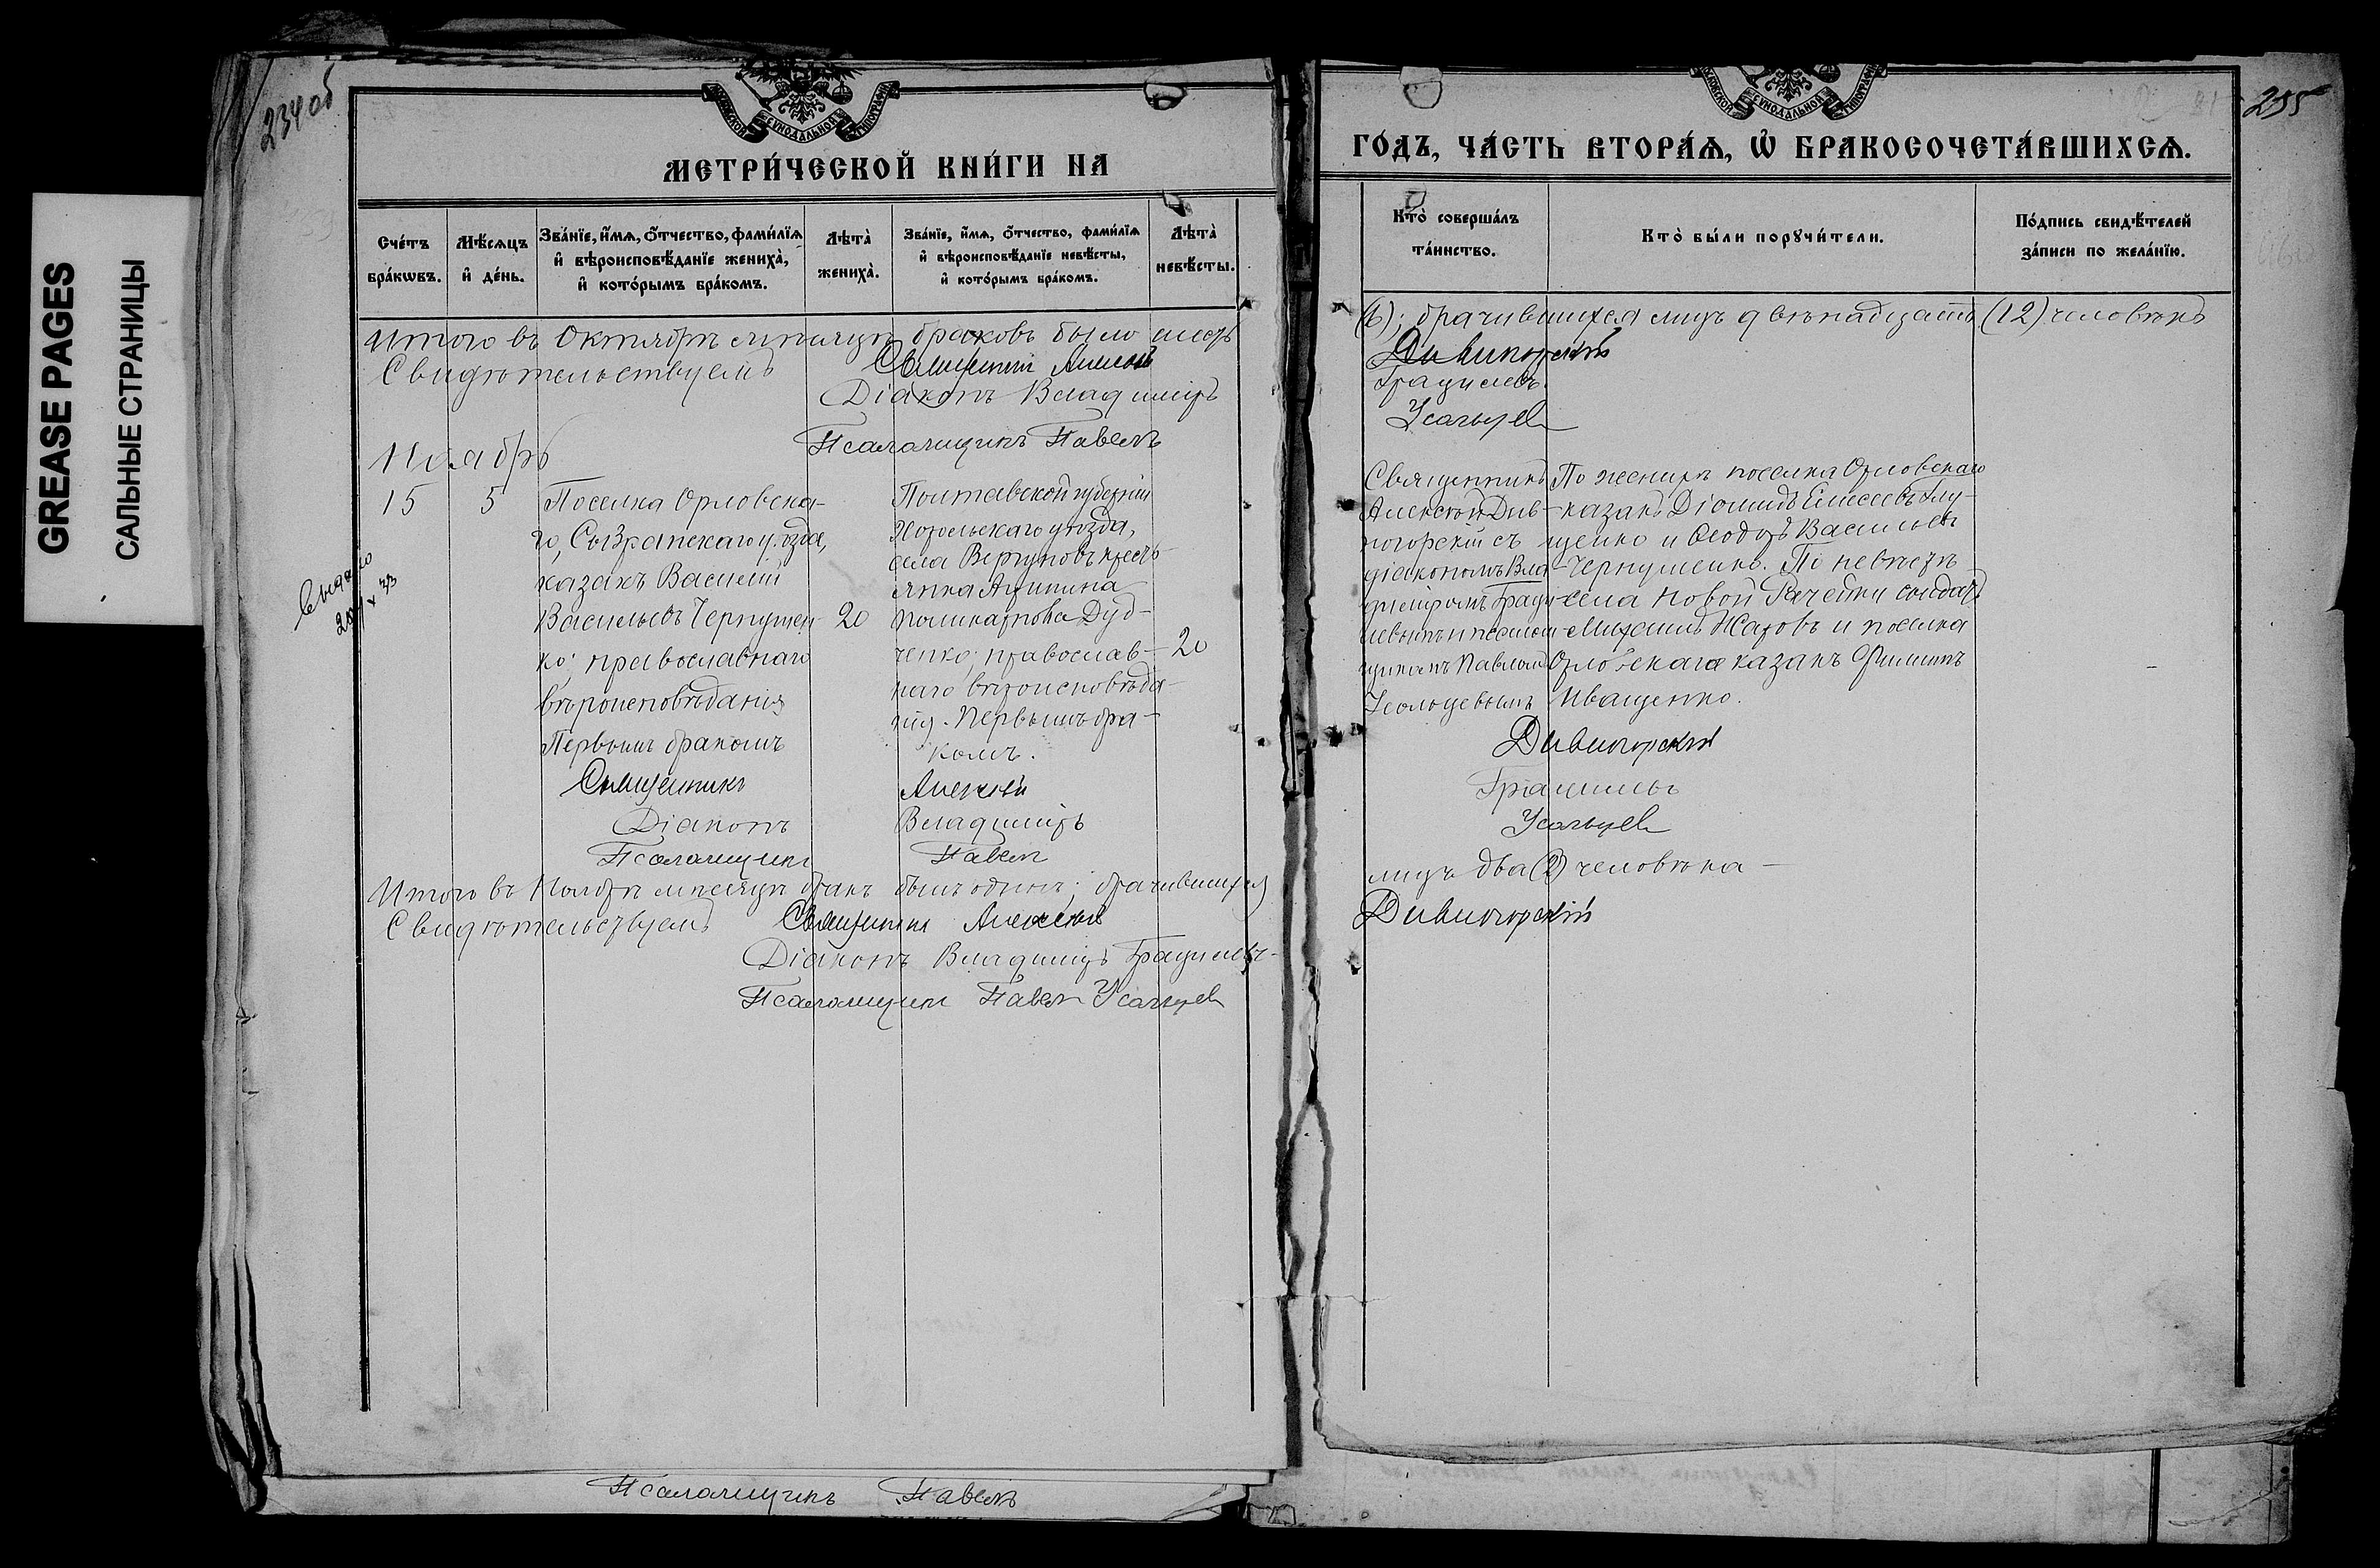 GREASE PAGES
САЛЬНЫЕ СТРАНИЦЫ
234об
МЕТРИ́ЧЕСКОЙ КНИ́ГИ НА
Сче́тъ бра́кѡвъ.
Мѣ́сяцъ и҆ де́нь.
Зва́нїе, и҆́мѧ, ѻ҆́тчество, фами́лїѧ и҆ вѣроисповѣ́данїе жениха̀, и҆ кото́рымъ бра́комъ.
Лѣта̀ жениха̀.
Зва́нїе, и҆́мѧ, ѻ҆́тчество, фами́лїѧ и҆ вѣроисповѣ́данїе невѣ́сты, и҆ кото́рымъ бра́комъ.
Лѣта̀ невѣ́сты.
Итого въ Октябрѣ мѣсяцѣ браковъ было шесть
Свидѣтельствуемъ
Священникъ Алексѣй
Діаконъ Владиміръ
Псаломщикъ Павелъ
Ноябрь
15
5
Поселка Орловска-
го, Сызранскаго уѣзда,
казакъ Василій
Васильевъ Чернушен-
ко; православнаго
вѣроисповѣданія
Первымъ бракомъ
20
Полтавской губерніи
Хорольскаго уѣзда,
села Вергуновъ кресть-
янка Агрипина
Поликарпова Дуд-
ченко; православ-
наго вѣроисповѣда-
нія. Первымъ бра-
комъ.
20
Священникъ Алексѣй
Діаконъ Владиміръ
Псаломщикъ Павелъ
Итого въ Ноябрѣ мѣсяцѣ бракъ былъ одинъ; брачившихся
Свидѣтельствуемъ
Священникъ Алексѣй
Діаконъ Владиміръ Градилевъ
Псаломщикъ Павелъ Усольцев
Псаломщикъ Павелъ
235
ГО́ДЪ, ЧА́СТЬ ВТОРА́Ѧ, Ѽ БРАКОСОЧЕТА́ВШИХСѦ.
Кто̀ соверша́лъ та́инство.
Кто̀ бы́ли порꙋчи́тели.
По́дпись свидѣ́телей за́писи по жела́нїю.
(6); брачившихся лицъ двѣнадцать (12) человѣкъ
Дивногорскій
Градилевъ.
Усольцев
Священникъ
Алексѣй Див-
ногорскій съ
діакономъ Вла-
диміромъ Гради-
левымъ и псалом-
щикомъ Павломъ
Усольцевымъ
По женихѣ поселка Орловскаго
казакъ Діомидъ Елисеевъ Глу-
щенко и Ѳеодоръ Васильевъ
Чернушенко. По невѣстѣ
села Новой Рачейки солдатъ
Михаилъ Жаровъ и поселка
Орловскаго казакъ Филиппъ
Иващенко.
Дивногорскій
Градилевъ
Усольцев
лицъ два (2) человѣка
Дивногорскій